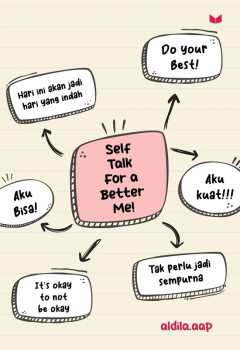 Do your
Best!
Hari ini akan jadi
hari yang indah
Self
Talk
For a
Better
Me!
Aku
kuat!!!
Aku
Bisa!
It's okay
to not
be okay
Tak perlu jadi
sempurna
aldila.aap